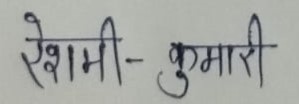 रेशमी- कुमारी